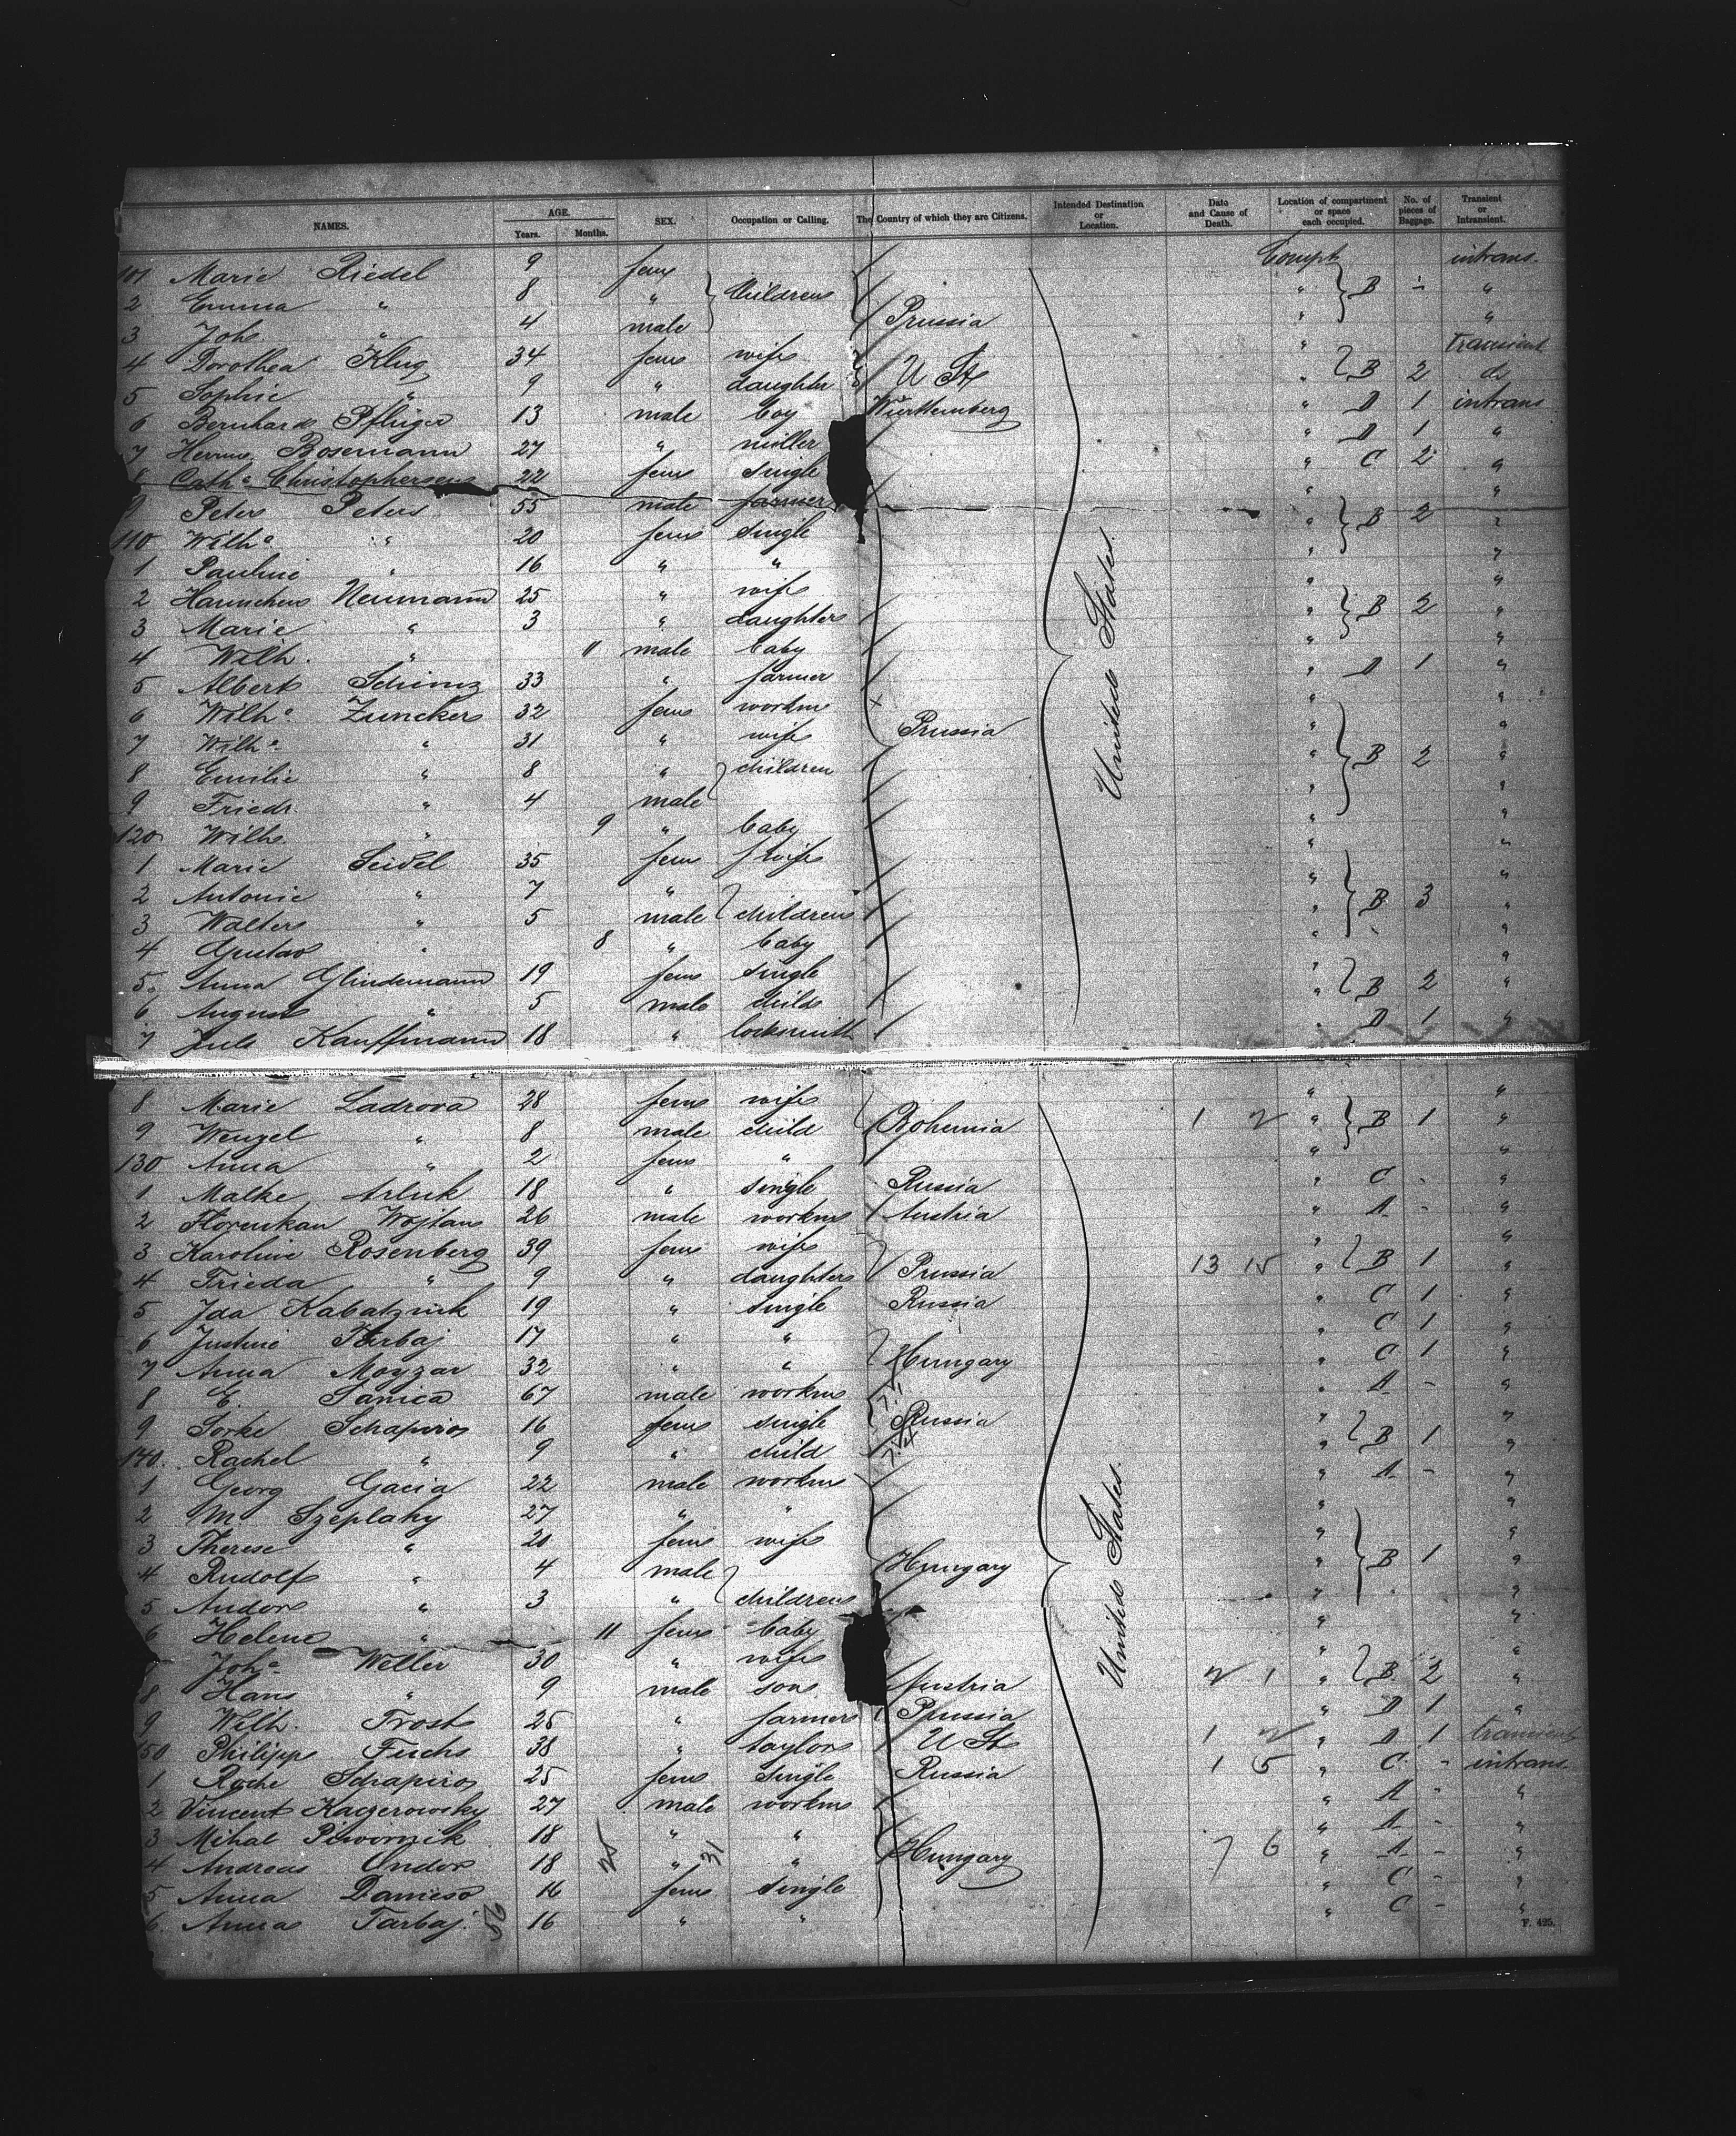 NAMES. AGE. Years. Months. SEX. Occupation or Calling. The Country of which they are Citizens. Intended Destination or Location. Date and Cause of Death. Location of compartment or space each occupied. No. of pieces of Baggage. Transient or Intransient.
101 Marie Riedel 9 fem Compt intrans.
2 Emma " 8 " Children " B - "
3 Joh " 4 male Prussia " "
4 Dorothea Klug 34 fem wife " transient
5 Sophie " 9 " daughter U St " B 2 do
6 Bernhard Pfluger 13 male boy Württemberg " D 1 intrans
7 Herm. Bosemann 27 " miller " D 1 "
8 Cath. Christophersen 22 fem single " C 2 "
9 Peter Peters 55 male farmer " "
110 Wilh. " 20 fem single " B 2 "
1 Pauline " 16 " " " "
2 Hannchen Neumann 25 " wife " "
3 Marie " 3 " daughter " B 2 "
4 Wilh. " 11 male baby " "
5 Albert Schinz 33 " farmer " D 1 "
6 Wilh. Zuncker 32 fem workm " "
7 Wilh. " 31 " wife Prussia " "
8 Emilie " 8 " children " B 2 "
9 Friedr. " 4 male " "
120 Wilh. " 9 " baby " "
1 Marie Seidel 35 fem wife " "
2 Antonie " 7 " " "
3 Walter " 5 male children " B 3 "
4 Gustav " 8 " baby " "
5 Anna Glindemann 19 fem single " "
6 August " 5 male child " B 2 "
7 Jul. Kauffmann 18 " locksmith D 1 "
United States.
8 Marie Ladrova 28 fem wife " "
9 Wenzel " 8 male child Bohemia 1 2 " B 1 "
130 Anna " 2 fem " " "
1 Malke Arluk 18 " single Russia " C - "
2 Wojtan 26 male workm Austria " A - "
3 Karoline Rosenberg 39 fem wife " "
4 Frieda " 9 " daughter Prussia 13 15 " B 1 "
5 Ida Kabatznik 19 " single Russia " C 1 "
6 Justine Tarbaj 17 " " " C 1 "
7 Anna Moyzar 32 " " Hungary " C 1 "
8 E. Sanica 67 male workm " A - "
9 Sorke Schapiro 16 fem single Russia " "
140 Rachel " 9 " child " B 1 "
1 Georg Gacia 22 male workm " A - "
2 M. Szeplaky 27 " " " "
3 Therese " 20 fem wife " "
4 Rudolf " 4 male Hungary " B 1 "
5 Andor " 3 " children " "
6 Helene " 11 fem baby " "
Joh. Weller 30 " wife " "
8 Hans " 9 male son Austria 2 1 " B 2 "
9 Wilh. Trost 25 " farmer Prussia " D 1 "
50 Philipp Fuchs 38 " taylor U St 1 2 " D 1 transient
1 Roche Schapiro 25 fem single Russia 1 5 " C - intrans.
2 Vincent Kaczerowsky 27 male workm " A - "
3 Mihal Piwornik 18 " " " A - "
4 Andreas Ondor 18 25 " 31 " Hungary 7 6 " A - "
5 Anna 16 fem single " C - "
6. Anna Tarbaj. 56 16 " " " C - "
United States.
F. 425.